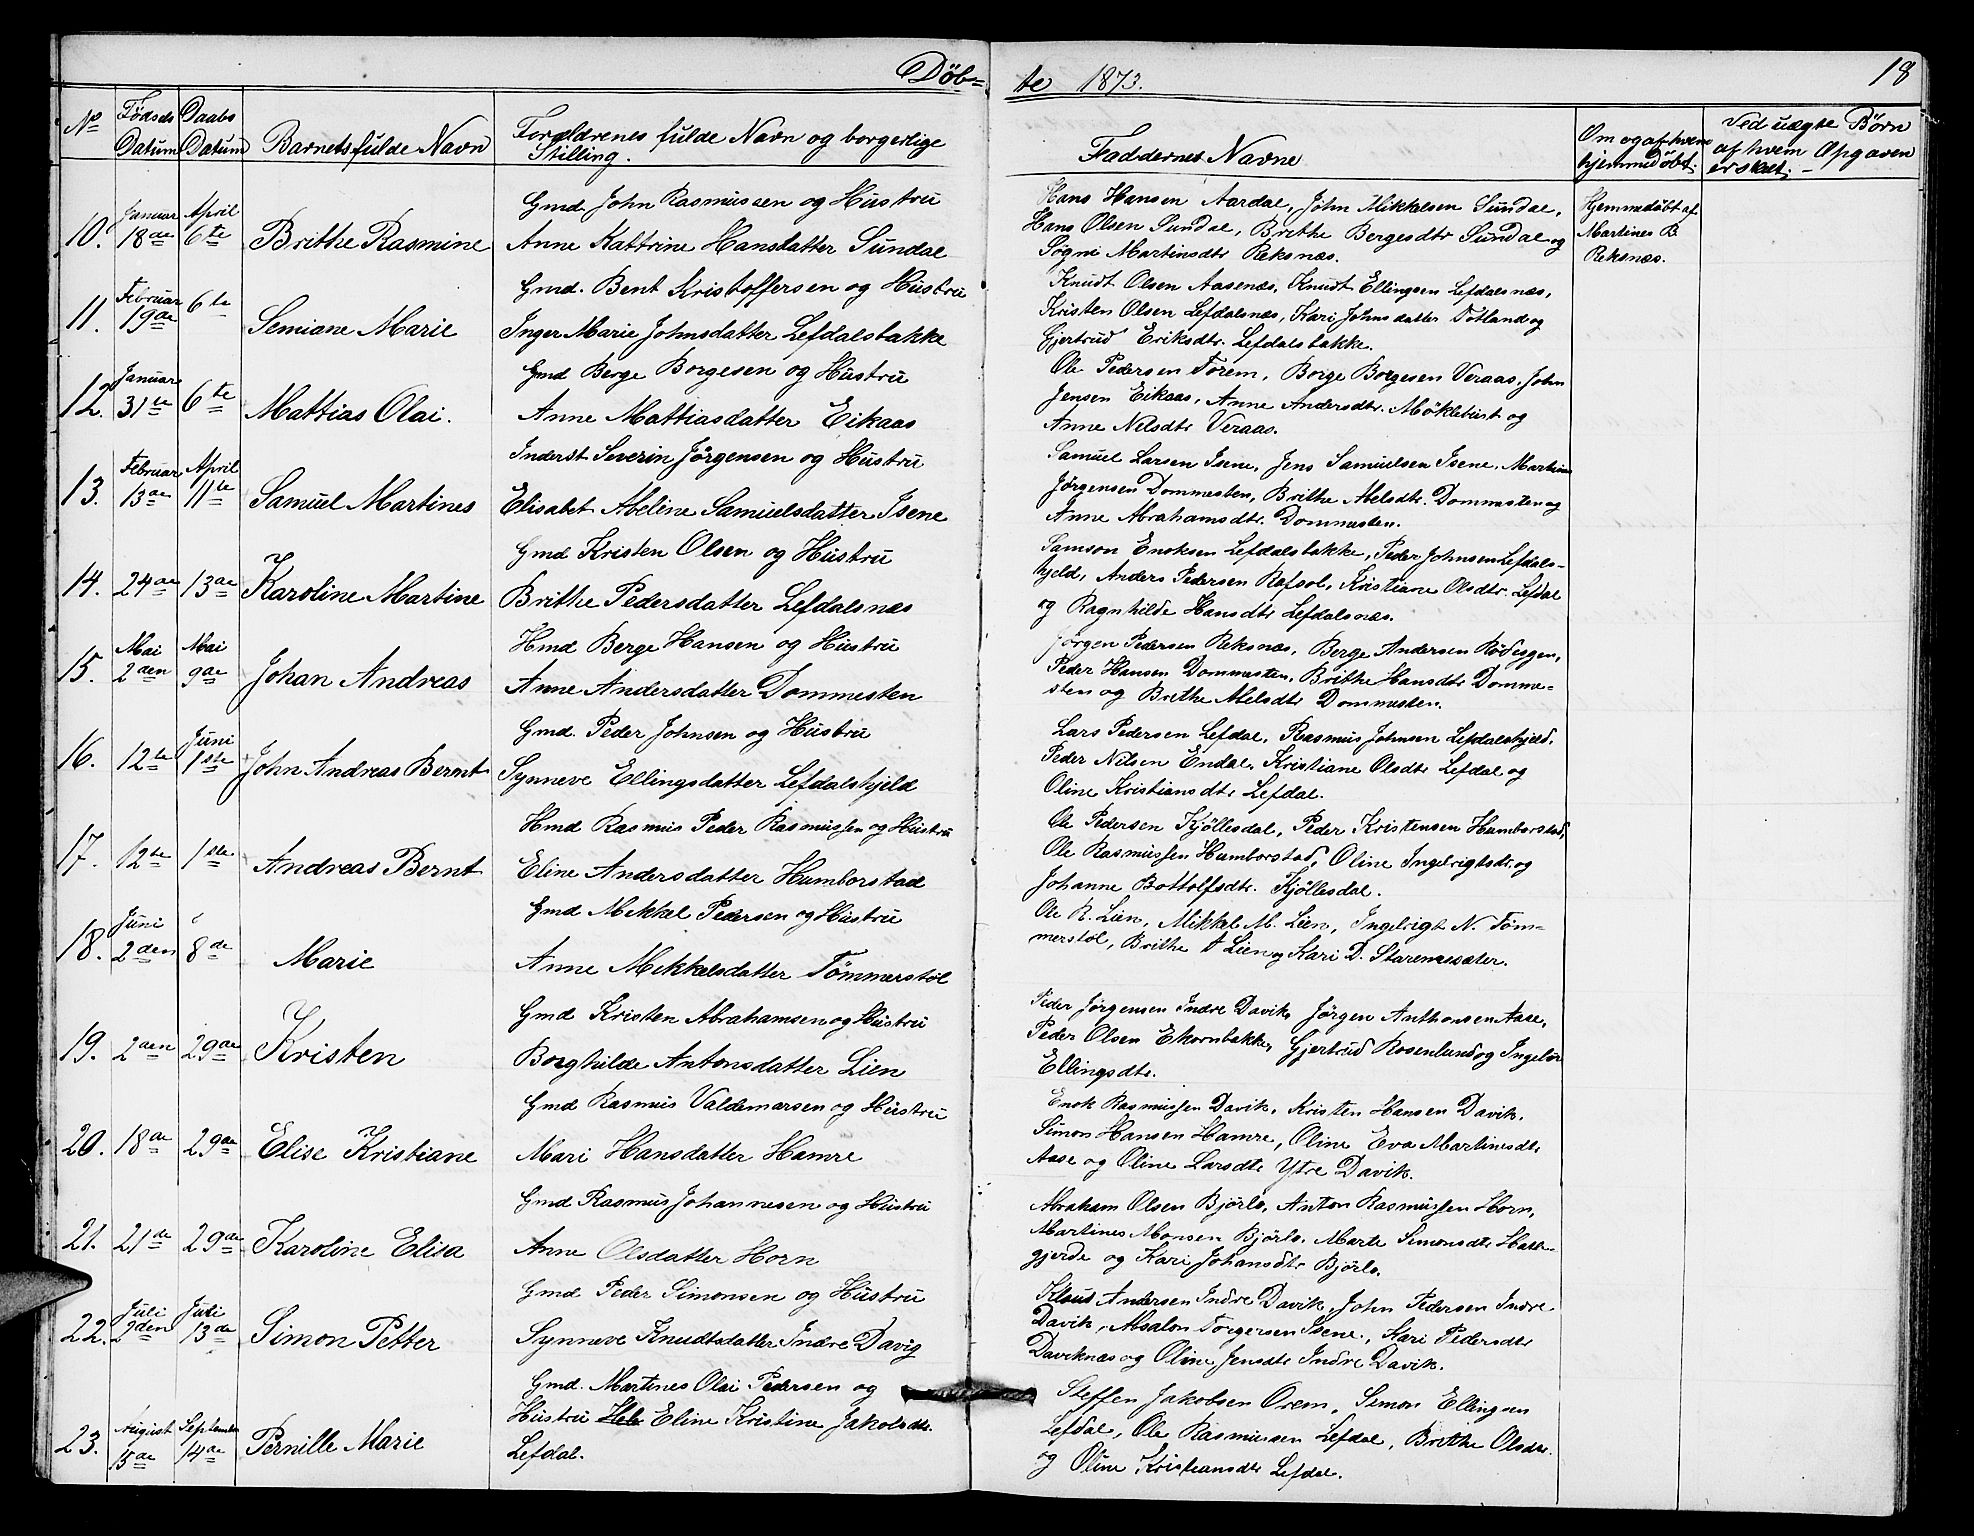 Döb= te 1873. 18
No Fødsels Datum Daabs Datum Barnets fulde Navn Forældrenes fulde Navn og borgerlige Stilling. Faddernes Navne Om og af hvem hjemmedøbt. Ved uægte Børn af hvem Opgaven er skeet.
10. Januar 18de April 6te Brithe Rasmine
Gmd. John Rasmussen og Hustru
Anne Kattrine Hansdatter Sundal
Hans Hansen Aardal, John Mikkelsen Sundal,
Hans Olsen Sundal, Brithe Bergesdtr Sundal og
Søgni Martinsdtr Reksnæs.
Hjemmedøbt af
Martines B.
Reksnæs.
11. Februar 19de 6te Semiane Marie
Gmd. Bent Kristoffersen og Hustru
Inger Marie Johnsdatter Lefdalsbakke
Knudt Olsen Aasenæs, Knudt Ellingsen Lefdalsnæs,
Kristen Olsen Lefdalsnæs, Kari Johnsdatter Totland og
Gjertrud Eriksdtr. Lefdalsbakke.
12. Januar 31te 6te Mattias Olai.
Gmd Berge Borgesen og Hustru
Anne Mattiasdatter Eikaas
Ole Pedersen Torem, Borge Borgesen Veraas, John
Jensen Eikaas, Anne Andersdtr. Møklebust og
Anne Nelsdtr Veraas.
13. Februar 13de April 11te Samuel Martines
Inderst Severin Jørgensen og Hustru
Elisabet Abeline Samuelsdatter Isene
Samuel Larsen Isene, Jens Samuelsen Isene, Martin
Jørgensen Dommesten, Brithe Abelsdtr. Dommesten og
Anne Abrahamsdtr. Dommesten.
14. 24de 13de Karoline Martine
Gmd Kristen Olsen og Hustru
Brithe Pedersdatter Lefdalsnæs
Samson Enoksen Lefdalsbakke, Peder Johnsen Lefdals-
hjeld, Anders Pedersen Rafsol, Kristiane Olsdtr. Lefdal
og Ragnhilde Hansdtr Lefdalsnæs.
15. Mai 2den Mai 9de Johan Andreas
Hmd Berge Hansen og Hustru
Anne Andersdatter Dommesten
Jørgen Pedersen Reksnæs, Berge Andersen Rødseggen,
Peder Hansen Dommesten, Brithe Hansdtr Domme-
sten og Brethe Abelsdtr Dommesten.
16. 12te Juni 1ste John Andreas Bernt
Gmd. Peder Johnsen og Hustru
Synneve Ellingsdatter Lefdalshjeld
Lars Pedersen Lefdal, Rasmus Johnsen Lefdalshjeld,
Peder Nilsen Endal, Kristiane Olsdtr Lefdal og
Oline Kristiansdtr Lefdal.
17. 12te 1ste Andreas Bernt
Hmd Rasmus Peder Rasmussen og Hustru
Eline Andersdatter Humborstad
Ole Pedersen Kjøllesdal, Peder Kristensen Humborstad,
Ole Rasmussen Humborstad, Oline Ingelrigtsdr. og
Johanne Bottolfsdtr. Kjøllesdal.
18. Juni 2den 8de Marie
Gmd Mekkel Pedersen og Hustru
Anne Mekkelsdatter Tömmerstøl
Ole R. Lien, Mikkel M. Lien, Ingelrigt N. Töm-
merstøl, Brithe Lien og Kari D. Staremesæter.
19. 2den 29de Kristen
Gmd Kristen Abrahamsen og Hustru
Borghilde Antonsdatter Lien
Peder Jørgensen Indre Davik, Jørgen Anthonsen Aase,
Peder Olsen Ekornbakke, Gjertrud Rosenlund og Ingebor
Ellingsdtr.
20. 18de 29de Elise Kristiane
Gmd Rasmus Valdemarsen og Hustru
Mari Hansdatter Hamre
Enok Rasmussen Davik, Kristen Hansen Davik,
Simon Hansen Hamre, Oline Eva Martinesdtr
Aase og Oline Larsdtr Ytre Davik.
21. 21de 29de Karoline Elisa
Gmd Rasmus Johannesen og Hustru
Anne Olsdatter Horn
Abraham Olsen Bjørlo, Anton Rasmussen Horn,
Martines Monsen Bjørlo, Marte Simonsdtr Hatle-
gjerde og Kari Johansdtr Bjørlo.
22. Juli 2den Juli 13de Simon Petter
Gmd Peder Simonsen og Hustru
Synneve Knudtsdatter Indre Davig
Klaus Andersen Indre Davik, John Pedersen Indre
Davik, Absalon Torgersen Isene, Kari Pedersdtr
Daviknæs og Oline Jensdtr Indre Davik.
23. August 15de September 14de Pernille Marie
Gmd. Martines Olai Pedersen og
Hustru Eline Kristine Jakobsdtr.
Lefdal.
Steffen Jakobsen Orem, Simon Ellingsen
Lefdal, Ole Rasmussen Lefdal, Brithe Olsdtr.
og Oline Kristiansdtr Lefdal.